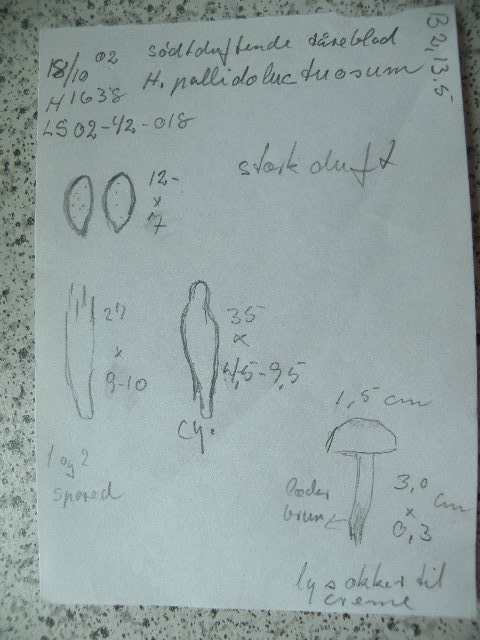 18/10 02 södtduftende tåreblad
H. pallidoluctuosum
H1638
LS02-42-018
B 2,13,5
stærk duft
12-
x
7
27
x
9-10
35
x
4,5-9,5
Cy.
1 og 2
spored
1,5 cm
læder
brun
3,0 cm
x
0,3
lys okker til
creme